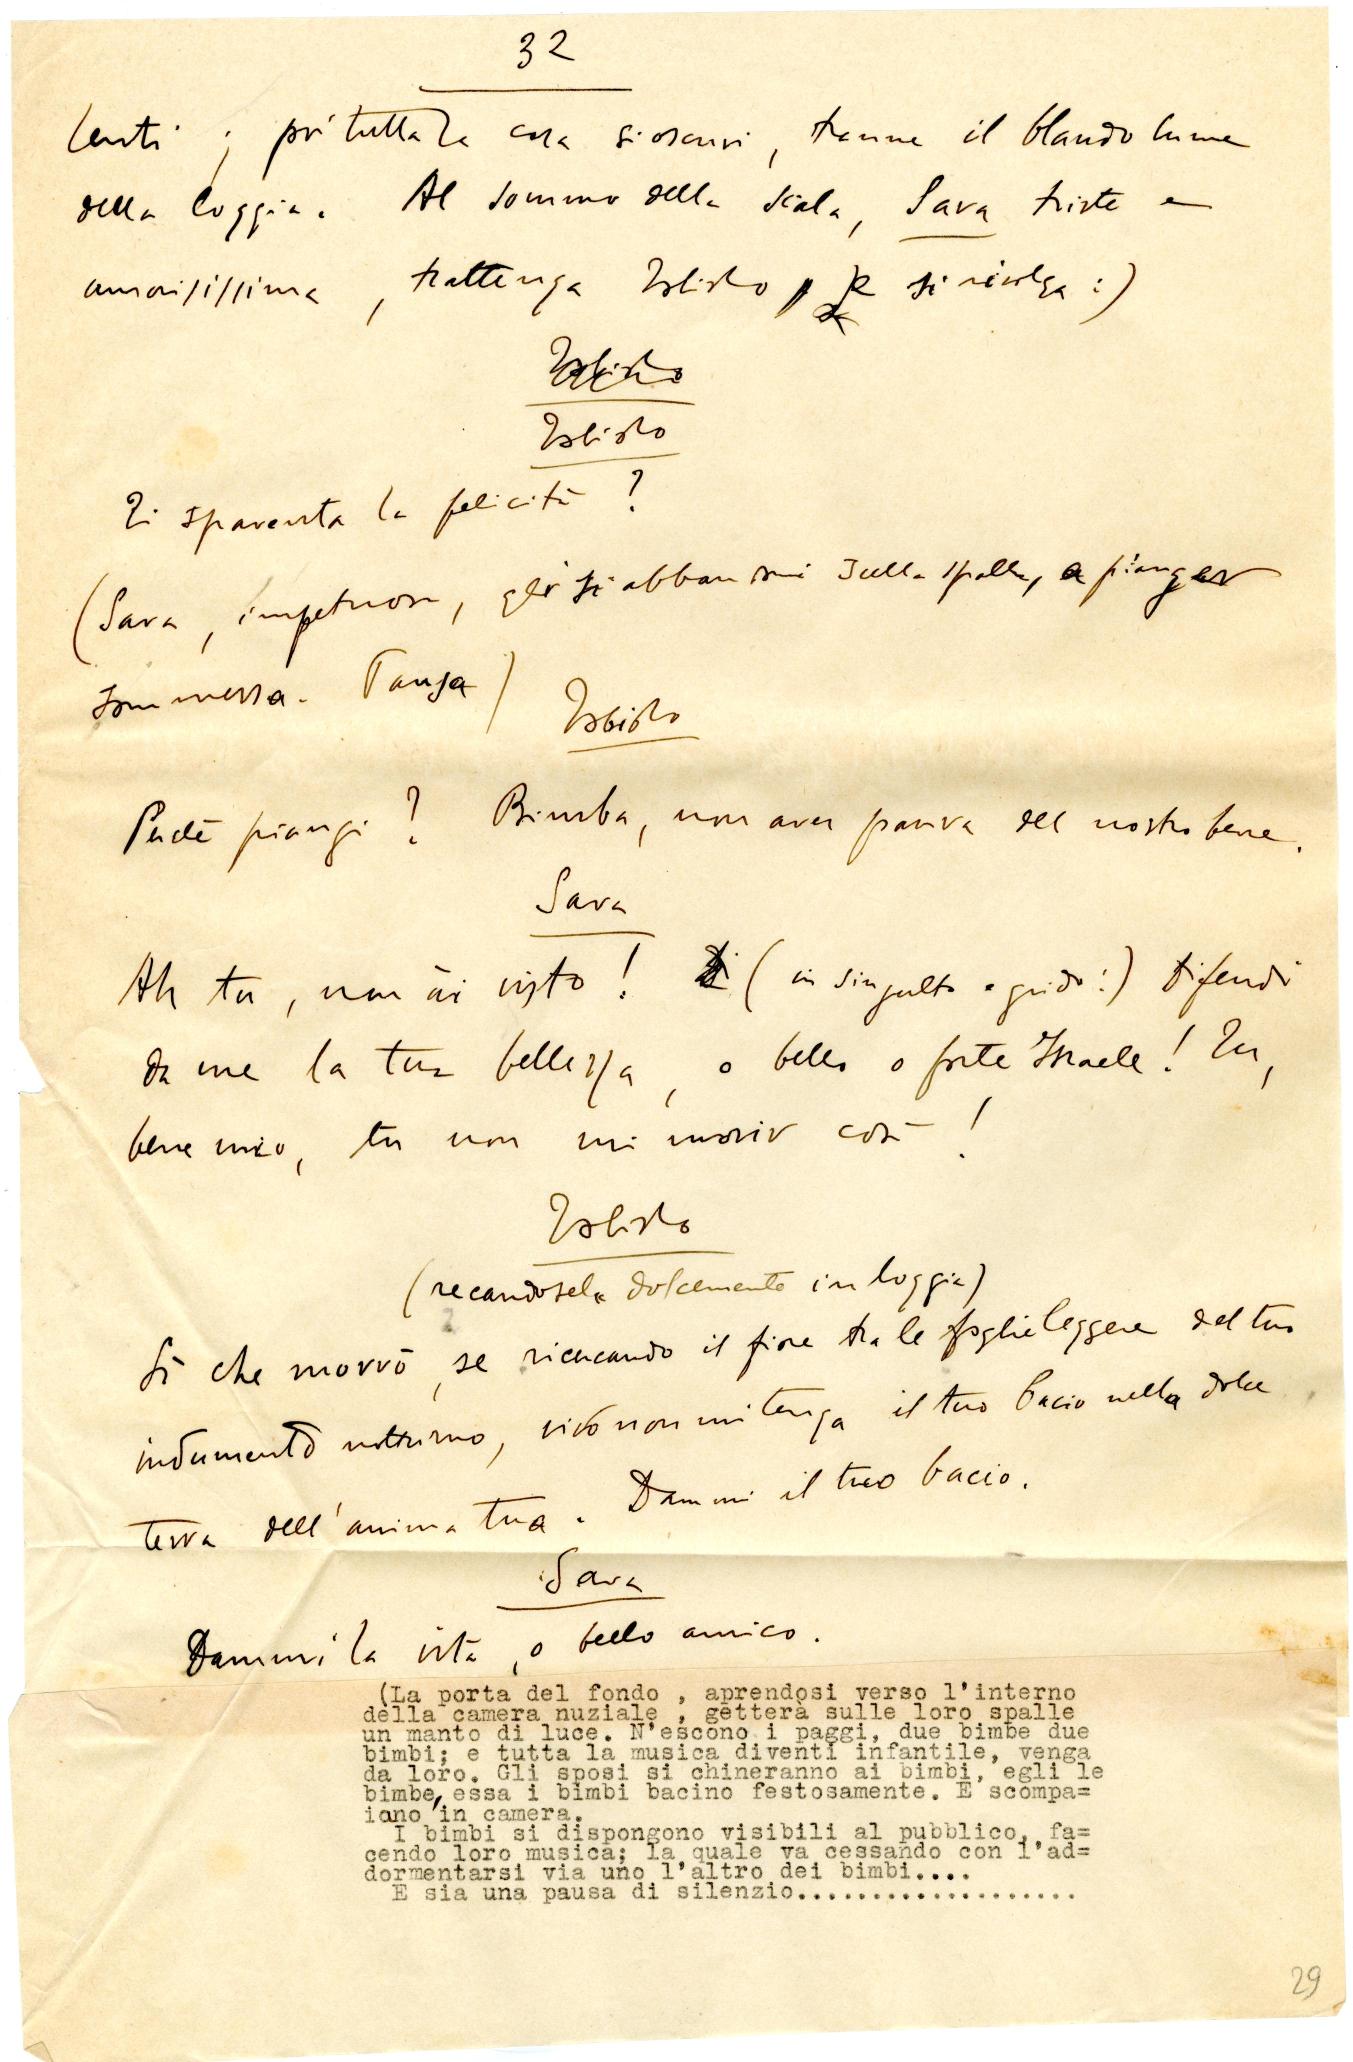 32
lenti ; poi tutta la casa si oscuri, tranne il blando lume
della loggia. Al sommo della scala, Sara triste e
amorosissima, trattenga Tobiolo, e si rivolga :)
Tobiolo
Tobiolo
Ti spaventa la felicità ?
(Sara, impetuosa, gli si abbandoni sulla spalla, a pianger
sommessa. Pausa)
Tobiolo
Perchè piangi ? Bimba, non aver paura del nostro bene.
Sara
Ah tu, non ài visto ! (in singulto e grido:) Difendi
da me la tua bellezza, o bello o forte Israele ! Tu,
bene mio, tu non mi morir così !
Tobiolo
(recandosela dolcemente in loggia)
Sì che morrò, se ricercando il fiore tra le foglie leggere del tuo
indumento notturno, vivo non mi tenga il tuo bacio nella dolce
terra dell'anima tua. Dammi il tuo bacio.
Sara
Dammi la vita, o bello amico.
(La porta del fondo , aprendosi verso l'interno
della camera nuziale , getterà sulle loro spalle
un manto di luce. N'escono i paggi, due bimbe due
bimbi; e tutta la musica diventi infantile, venga
da loro. Gli sposi si chineranno ai bimbi, egli le
bimbe, essa i bimbi bacino festosamente. E scompa=
iono in camera.
I bimbi si dispongono visibili al pubblico, fa=
cendo loro musica; la quale va cessando con l'ad=
dormentarsi via uno l'altro dei bimbi....
E sia una pausa di silenzio...................
29